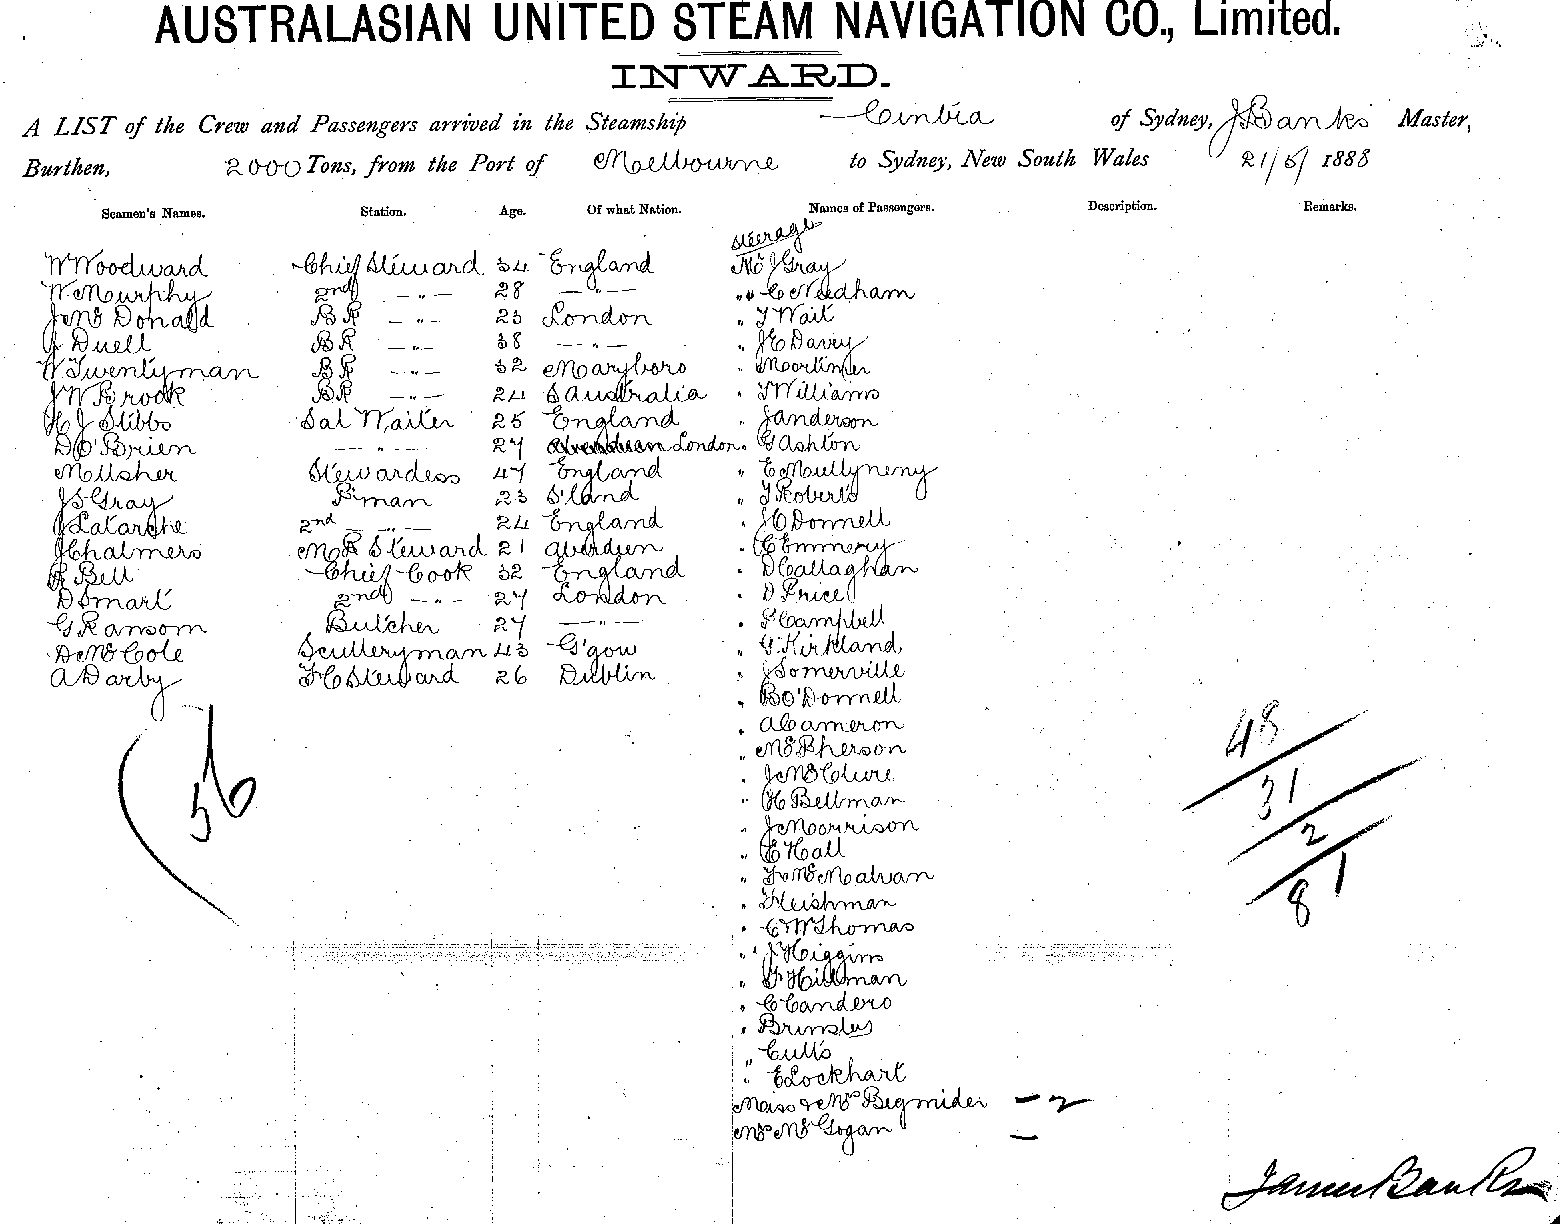 AUSTRALASIAN UNITED STEAM NAVIGATION CO., Limited.
INWARD.
A LIST of the Crew and Passengers arrived in the Steamship Cintra of Sydney, J Banks Master,
Burthen, 2000 Tons, from the Port of Melbourne to Sydney, New South Wales 21/5/ 1888
Seamen's Names. Station. Age. Of what Nation. Names of Passengers. Description. Remarks.
Steerage
W Woodward Chief Steward 34 England Mr J Gray
W Murphy 2nd — " — 28 — " — " C Needham
J McDonald BR — " — 23 London " T Wait
J Duell BR — " — 38 — " — " J C Davey
W Twentyman BR — " — 32 Maryboro " Mortimer
J W Brook BR — " — 24 S Australia " T Williams
H J Stibbs Sal Waiter 25 England " J Anderson
D O'Brien — " — 27 London " G Ashton
M Usher Stewardess 47 England " E Mullyneny
J S Gray P'man 23 S'land " T Roberts
J Latarche 2nd — " — 24 England " J C Donnell
J Chalmers M R Steward 21 Aberdeen " C Emmery
R Bell Chief Cook 32 England " D Callaghan
D Smart 2nd — " — 27 London " D Price
G Ransom Butcher 27 — " — " P Campbell
D McCole Sculleryman 43 G'gow " G Kirkland
A Darby F C Steward 26 Dublin " J Somerville
" B O'Donnell
" A Cameron
" McPherson
" J McClure
" H Bellman
" J Morrison
" E Hall
" F McMalvan
" Fleishman
" C W Thomas
" J Higgins
" F Hillman
" C Candero
" Brinsley
" Cutts
" E Lockhart
Miss & Mrs Begmider — 2
Mrs McGogan —
56
48
31
2
81
James Banks